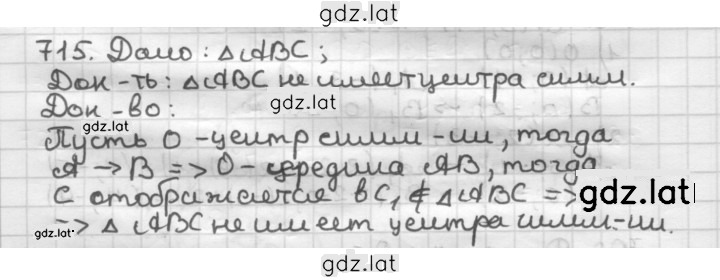 gdz.lat
715. Дано: △ABC;
Док-ть: △ABC не имеет центра симм.
gdz.lat
Док-во:
gdz.lat
Пусть O - центр симм-ии, тогда
A → B => O - середина AB, тогда
C отображается в C₁ ∉ △ABC =>
gdz.lat
=> △ABC не имеет центра симм-ии.
gdz.lat
gdz.lat